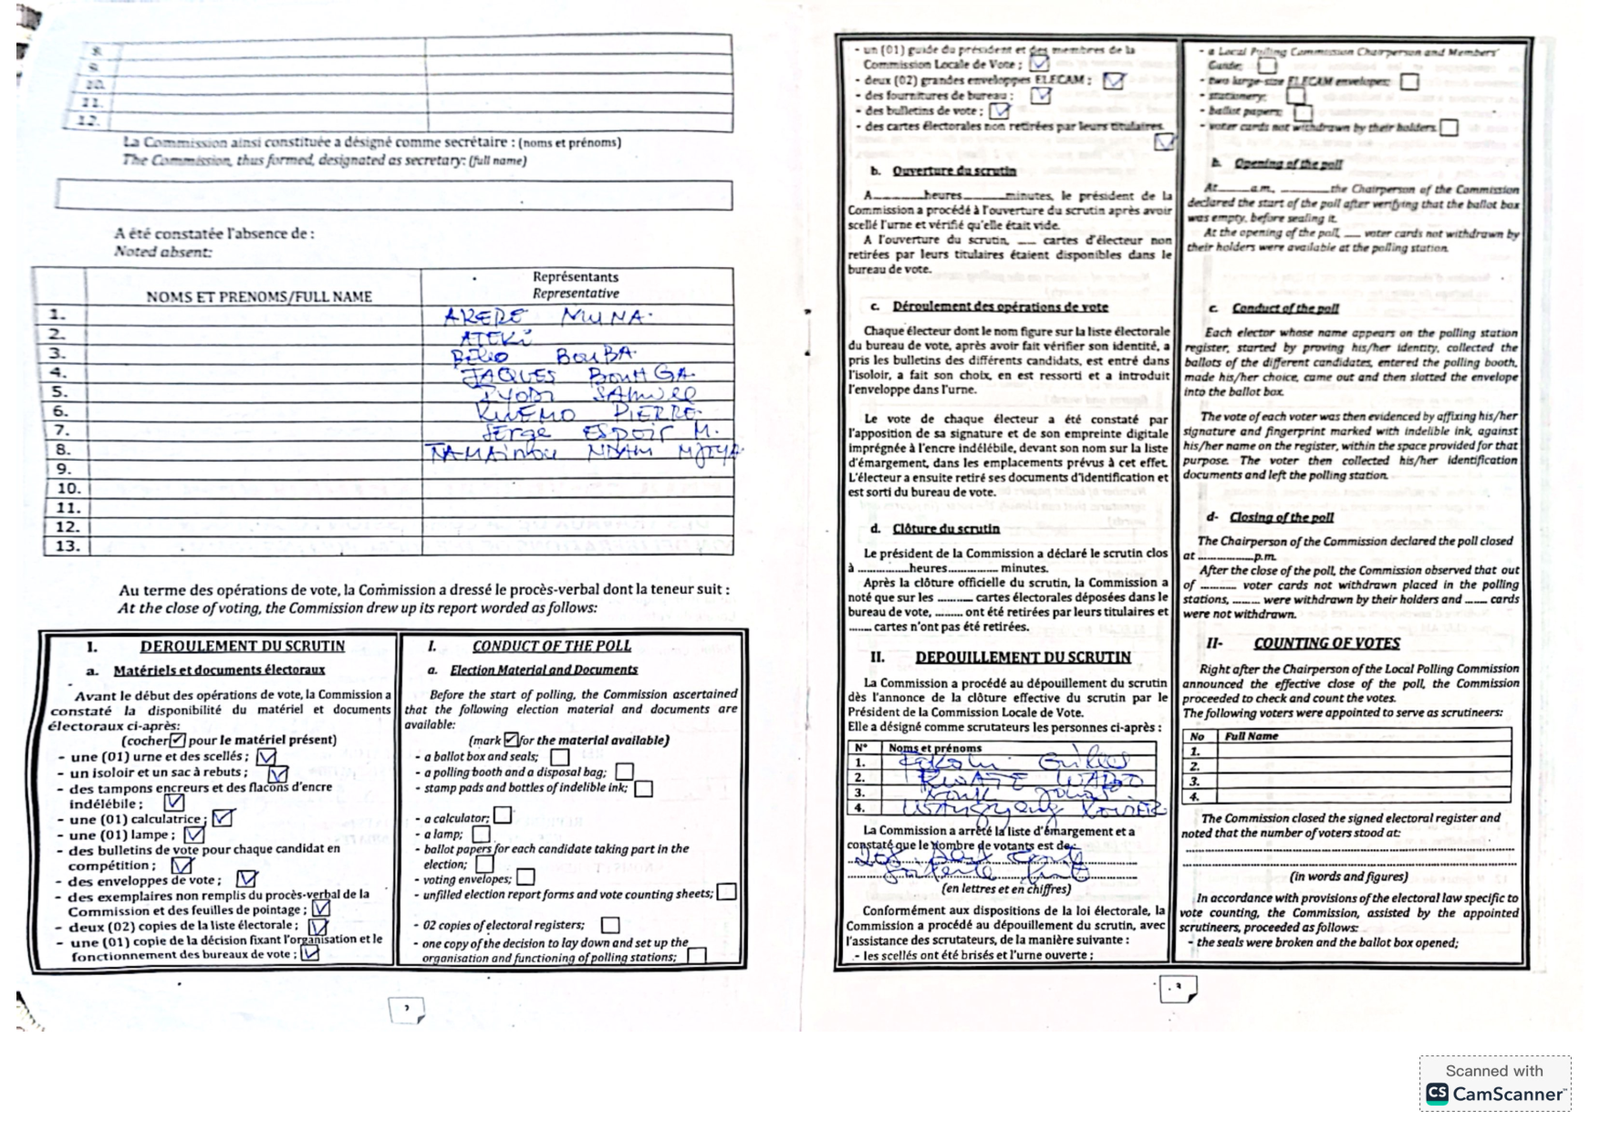 8.
9.
10.
11.
12.
La Commission ainsi constituée a désigné comme secrétaire : (noms et prénoms)
The Commission, thus formed, designated as secretary: (full name)
A été constatée l'absence de :
Noted absent:
NOMS ET PRENOMS/FULL NAME
Représentants
Representative
1. AKERE MUNA.
2. ATEKI
3. BELLO BOUBA.
4. JAQUES BOUHGA
5.
6. KWEMO PIERRE.
7. Serge ESPOIR M.
8. NDAM NJOYA
9.
10.
11.
12.
13.
Au terme des opérations de vote, la Commission a dressé le procès-verbal dont la teneur suit :
At the close of voting, the Commission drew up its report worded as follows:
I. DEROULEMENT DU SCRUTIN
a. Matériels et documents électoraux
Avant le début des opérations de vote, la Commission a
constaté la disponibilité du matériel et documents
électoraux ci-après:
(cocher ✓ pour le matériel présent)
- une (01) urne et des scellés ; ✓
- un isoloir et un sac à rebuts ; ✓
- des tampons encreurs et des flacons d'encre
indélébile ; ✓
- une (01) calculatrice ; ✓
- une (01) lampe ; ✓
- des bulletins de vote pour chaque candidat en
compétition ; ✓
- des enveloppes de vote ; ✓
- des exemplaires non remplis du procès-verbal de la
Commission et des feuilles de pointage ; ✓
- deux (02) copies de la liste électorale ; ✓
- une (01) copie de la décision fixant l'organisation et le
fonctionnement des bureaux de vote ; ✓
I. CONDUCT OF THE POLL
a. Election Material and Documents
Before the start of polling, the Commission ascertained
that the following election material and documents are
available:
(mark ✓ for the material available)
- a ballot box and seals;
- a polling booth and a disposal bag;
- stamp pads and bottles of indelible ink;
- a calculator;
- a lamp;
- ballot papers for each candidate taking part in the
election;
- voting envelopes;
- unfilled election report forms and vote counting sheets;
- 02 copies of electoral registers;
- one copy of the decision to lay down and set up the
organisation and functioning of polling stations;
- un (01) guide du président et des membres de la
Commission Locale de Vote ; ✓
- deux (02) grandes enveloppes ELECAM ; ✓
- des fournitures de bureau ; ✓
- des bulletins de vote ; ✓
- des cartes électorales non retirées par leurs titulaires. ✓
b. Ouverture du scrutin
A..........heures..........minutes, le président de la
Commission a procédé à l'ouverture du scrutin après avoir
scellé l'urne et vérifié qu'elle était vide.
A l'ouverture du scrutin, ..... cartes d'électeur non
retirées par leurs titulaires étaient disponibles dans le
bureau de vote.
c. Déroulement des opérations de vote
Chaque électeur dont le nom figure sur la liste électorale
du bureau de vote, après avoir fait vérifier son identité, a
pris les bulletins des différents candidats, est entré dans
l'isoloir, a fait son choix, en est ressorti et a introduit
l'enveloppe dans l'urne.
Le vote de chaque électeur a été constaté par
l'apposition de sa signature et de son empreinte digitale
imprégnée à l'encre indélébile, devant son nom sur la liste
d'émargement, dans les emplacements prévus à cet effet.
L'électeur a ensuite retiré ses documents d'identification et
est sorti du bureau de vote.
d. Clôture du scrutin
Le président de la Commission a déclaré le scrutin clos
à ..............heures.............. minutes.
Après la clôture officielle du scrutin, la Commission a
noté que sur les .......... cartes électorales déposées dans le
bureau de vote, ......... ont été retirées par leurs titulaires et
....... cartes n'ont pas été retirées.
II. DEPOUILLEMENT DU SCRUTIN
La Commission a procédé au dépouillement du scrutin
dès l'annonce de la clôture effective du scrutin par le
Président de la Commission Locale de Vote.
Elle a désigné comme scrutateurs les personnes ci-après :
N° Noms et prénoms
1.
2.
3.
4.
La Commission a arrêté la liste d'émargement et a
constaté que le Nombre de votants est de:
(en lettres et en chiffres)
Conformément aux dispositions de la loi électorale, la
Commission a procédé au dépouillement du scrutin, avec
l'assistance des scrutateurs, de la manière suivante :
- les scellés ont été brisés et l'urne ouverte ;
- a Local Polling Commission Chairperson and Members'
Guide;
- two large-size ELECAM envelopes;
- stationery;
- ballot papers;
- voter cards not withdrawn by their holders.
b. Opening of the poll
At......a.m, .........the Chairperson of the Commission
declared the start of the poll after verifying that the ballot box
was empty, before sealing it.
At the opening of the poll, .... voter cards not withdrawn by
their holders were available at the polling station.
c. Conduct of the poll
Each elector whose name appears on the polling station
register, started by proving his/her identity, collected the
ballots of the different candidates, entered the polling booth,
made his/her choice, came out and then slotted the envelope
into the ballot box.
The vote of each voter was then evidenced by affixing his/her
signature and fingerprint marked with indelible ink, against
his/her name on the register, within the space provided for that
purpose. The voter then collected his/her identification
documents and left the polling station.
d- Closing of the poll
The Chairperson of the Commission declared the poll closed
at .................p.m.
After the close of the poll, the Commission observed that out
of .......... voter cards not withdrawn placed in the polling
stations, ....... were withdrawn by their holders and ...... cards
were not withdrawn.
II- COUNTING OF VOTES
Right after the Chairperson of the Local Polling Commission
announced the effective close of the poll, the Commission
proceeded to check and count the votes.
The following voters were appointed to serve as scrutineers:
No Full Name
1.
2.
3.
4.
The Commission closed the signed electoral register and
noted that the number of voters stood at:
(in words and figures)
In accordance with provisions of the electoral law specific to
vote counting, the Commission, assisted by the appointed
scrutineers, proceeded as follows:
- the seals were broken and the ballot box opened;
Scanned with
CS CamScanner